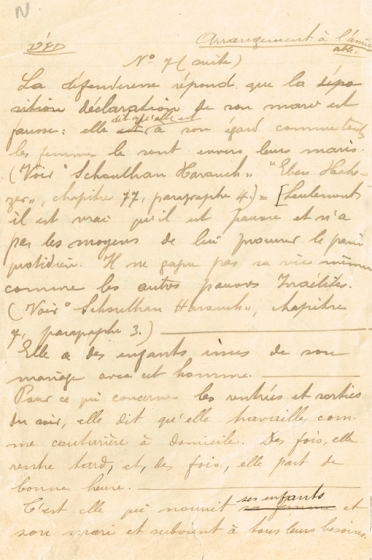 N.
DÉD Arrangement à l'amia-
ble.
No 7 (suite)
La défenderesse répond que la dépo
sition déclaration de son mari est
dit qu'elle est
fausse: elle à son égard comme tout
les femmes le sont envers leurs maris.
(Voir "Schoulhan Harauch" "Eben Haeh-
zer", chapitre 77, paragraphe 4.) = [Seulement
il est vrai qu'il est pauvre et n'a
pas les moyens de lui procurer le pain
quotidien. Il ne gagne pas sa vie même
comme les autres pauvres Israélites.
(Voir "Schoulhan Harauch", chapitre
7, paragraphe 3.)
Elle a des enfants issus de son
mariage avec cet homme.
Pour ce qui concerne les rentrées et sorties
du soir, elle dit qu'elle travaille com-
me couturière à domicile. Des fois, elle
rentre tard, et, des fois, elle part de
bonne heure.
ses enfants
C'est elle qui nourrit sa femme et
son mari et subvient à tous leurs besoins.